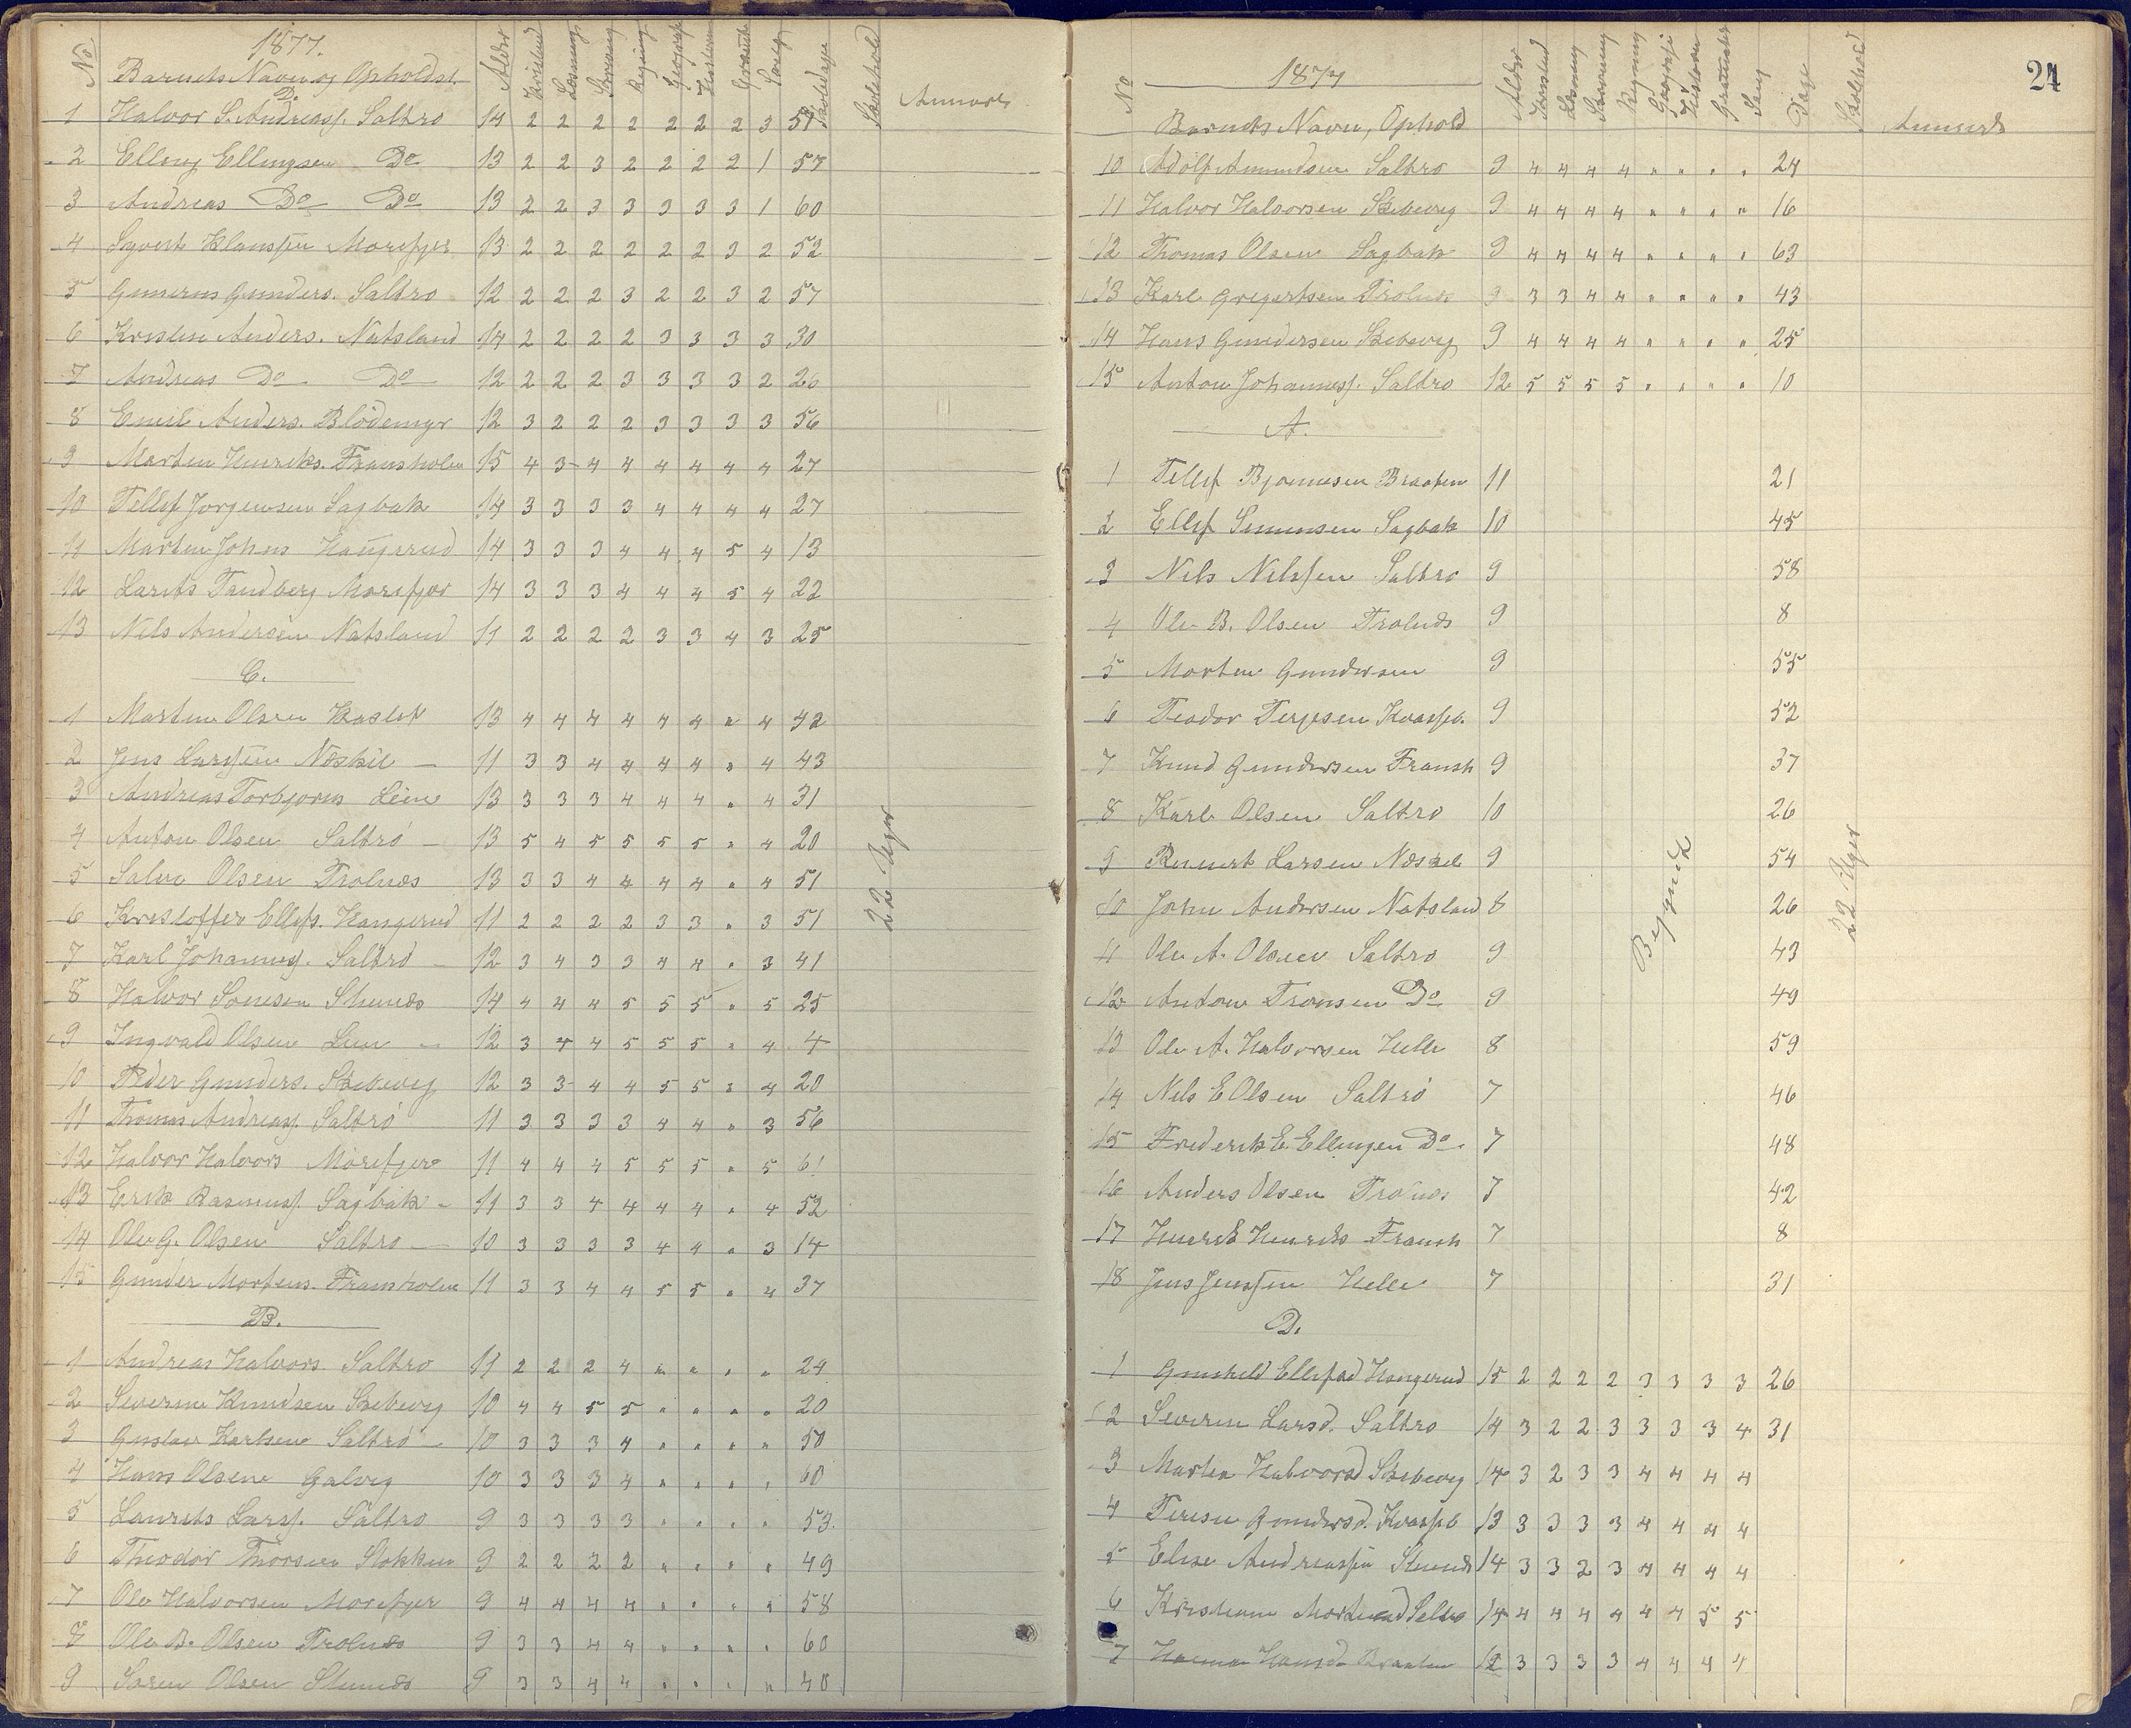 1877.
No Barnets Navn og Opholdst. Alder Kristend Læsning Skrivning Regning Geografi Historie Sang Skoledage Skolehold Anmærk
D.
1 Halvor S. Andreass. Saltrø 14 2 2 2 2 2 2 2 3 51
2 Elling Ellingsen Do 13 2 2 3 2 2 2 2 1 57
3 Andreas Do Do 13 2 2 3 3 3 3 3 1 60
4 Syvert Klaussen Morefjer 13 2 2 2 2 2 2 3 2 52
5 Gunders. Saltrø 12 2 2 2 3 2 2 3 2 57
6 Kristen Anders. Natsland 14 2 2 2 2 3 3 3 3 30
7 Andreas Do Do 12 2 2 2 3 3 3 3 2 26
8 Emil Anders. Blödemyr 12 3 2 2 2 3 3 3 3 56
9 Marten Henriks. Fransholm 15 4 3 4 4 4 4 4 4 27
10 Tellef Jorgensen Sagbak 14 3 3 3 3 4 4 4 4 27
11 Marten Johns Haugerud 14 3 3 3 4 4 4 5 4 13
12 Larits Tandberg Morefjær 14 3 3 3 4 4 4 5 4 22
13 Nils Andersen Natsland 11 2 2 2 2 3 3 4 3 25
C.
1 Marten Olsen Haslef 13 4 4 4 4 4 4 " 4 42
2 Jens Larssen Næskil 11 3 3 4 4 4 4 " 4 43
3 Andreas Torbjorns Leen 13 3 3 3 4 4 4 " 4 31
4 Anton Olsen Saltrø 13 5 4 5 5 5 5 " 4 20
5 Salve Olsen Trolnæs 13 3 3 4 4 4 4 " 4 51
6 Kristoffer Ellefs. Haugerud 11 2 2 2 2 3 3 " 3 51
7 Karl Johannes. Saltrø 12 3 4 3 3 4 4 " 3 41
8 Halvor Somsen Stunæs 14 4 4 4 5 5 5 " 5 25
9 Ingvald Olsen Leen 12 3 4 4 5 5 5 " 4 4
10 Peder Gunders. Skibevig 12 3 3 4 4 5 5 " 4 20
11 Thomas Andreass. Saltrø 11 3 3 3 3 4 4 " 3 56
12 Halvor Halvors Morefjær 11 4 4 4 5 5 5 " 5 61
13 Erik Rasmuss. Sagbak 11 3 3 4 4 4 4 " 4 52
14 Ole G. Olsen Saltrø 10 3 3 3 3 4 4 " 3 14
15 Gunder Mortens. Fransholm 11 3 3 4 4 5 5 " 4 37
22 Uger
B.
1 Andreas Halvors. Saltrø 11 2 2 2 4 " " " " 24
2 Severin Knudsen Skibevig 10 4 4 5 5 " " " " 20
3 Gustav Karlsen Saltrø 10 3 3 3 4 " " " " 50
4 Hans Olsen Galvig 10 3 3 3 4 " " " " 60
5 Laurits Larss. Saltrø 9 3 3 3 3 " " " " 53
6 Theodor Thorsen Stokken 9 2 2 2 2 " " " " 49
7 Ole Halvorsen Morefjer 9 4 4 4 4 " " " " 58
8 Ole B. Olsen Trolnæs 9 3 3 4 4 " " " " 60
9 Søren Olsen Stunæs 9 3 3 4 4 " " " " 40
24
1877
No Barnets Navn, Ophold Alder Kristend Læsning Skrivning Regning Geografi Historie Sang Dage Skolehold Anmærk
10 Adolf Amundsen Saltrø 9 4 4 4 4 " " " " 24
11 Halvor Halvorsen Skibevig 9 4 4 4 4 " " " " 16
12 Thomas Olsen Sagbak 9 4 4 4 4 " " " " 63
13 Karl Gregertsen Trolnæs 9 3 3 4 4 " " " " 43
14 Hans Gundersen Skibevig 9 4 4 4 4 " " " " 25
15 Anton Johanness. Saltrø 12 5 5 5 5 " " " " 10
A.
1 Tellef Bjornnsen Braaten 11 21
2 Ellef Simonsen Sagbak 10 45
3 Nils Nilssen Saltrø 9 58
4 Ole B. Olsen Trolnæs 9 8
5 Morten Gundersen 9 55
6 Teodor Terjesen Kvasfjel. 9 52
7 Knud Gundersen Fransh 9 37
8 Karl Olsen Saltrø 10 26
9 Reinert Larsen Næskil 9 54
10 John Andersen Natsland 8 26
11 Ole A. Olsen Saltrø 9 43
12 Anton Tronsen Do 9 49
13 Ole A. Halvorsen Helle 8 59
14 Nils E Olsen Saltrø 7 46
15 Frederik E. Ellingsen Do 7 48
16 Anders Olsen Trolnæs 7 42
17 Henrik Henriks Fransh 7 8
18 Jens Jenssen Helle 7 31
Begynd
22 Uger
D.
1 Gunhild Ellefsd Haugerud 15 2 2 2 2 3 3 3 3 26
2 Severin Larsd. Saltrø 14 3 2 2 3 3 3 3 4 31
3 Martea Halvorsd Skibevig 14 3 2 3 3 4 4 4 4
4 Teresie Gundersd. Kvasfjel 13 3 3 3 3 4 4 4 4
5 Elise Andreassen Stunæs 14 3 3 2 3 4 4 4 4
6 Kristiane Mortensd Saltrø 14 4 4 4 4 4 4 5 5
7 Hansd. Braaten 12 3 3 3 3 4 4 4 4